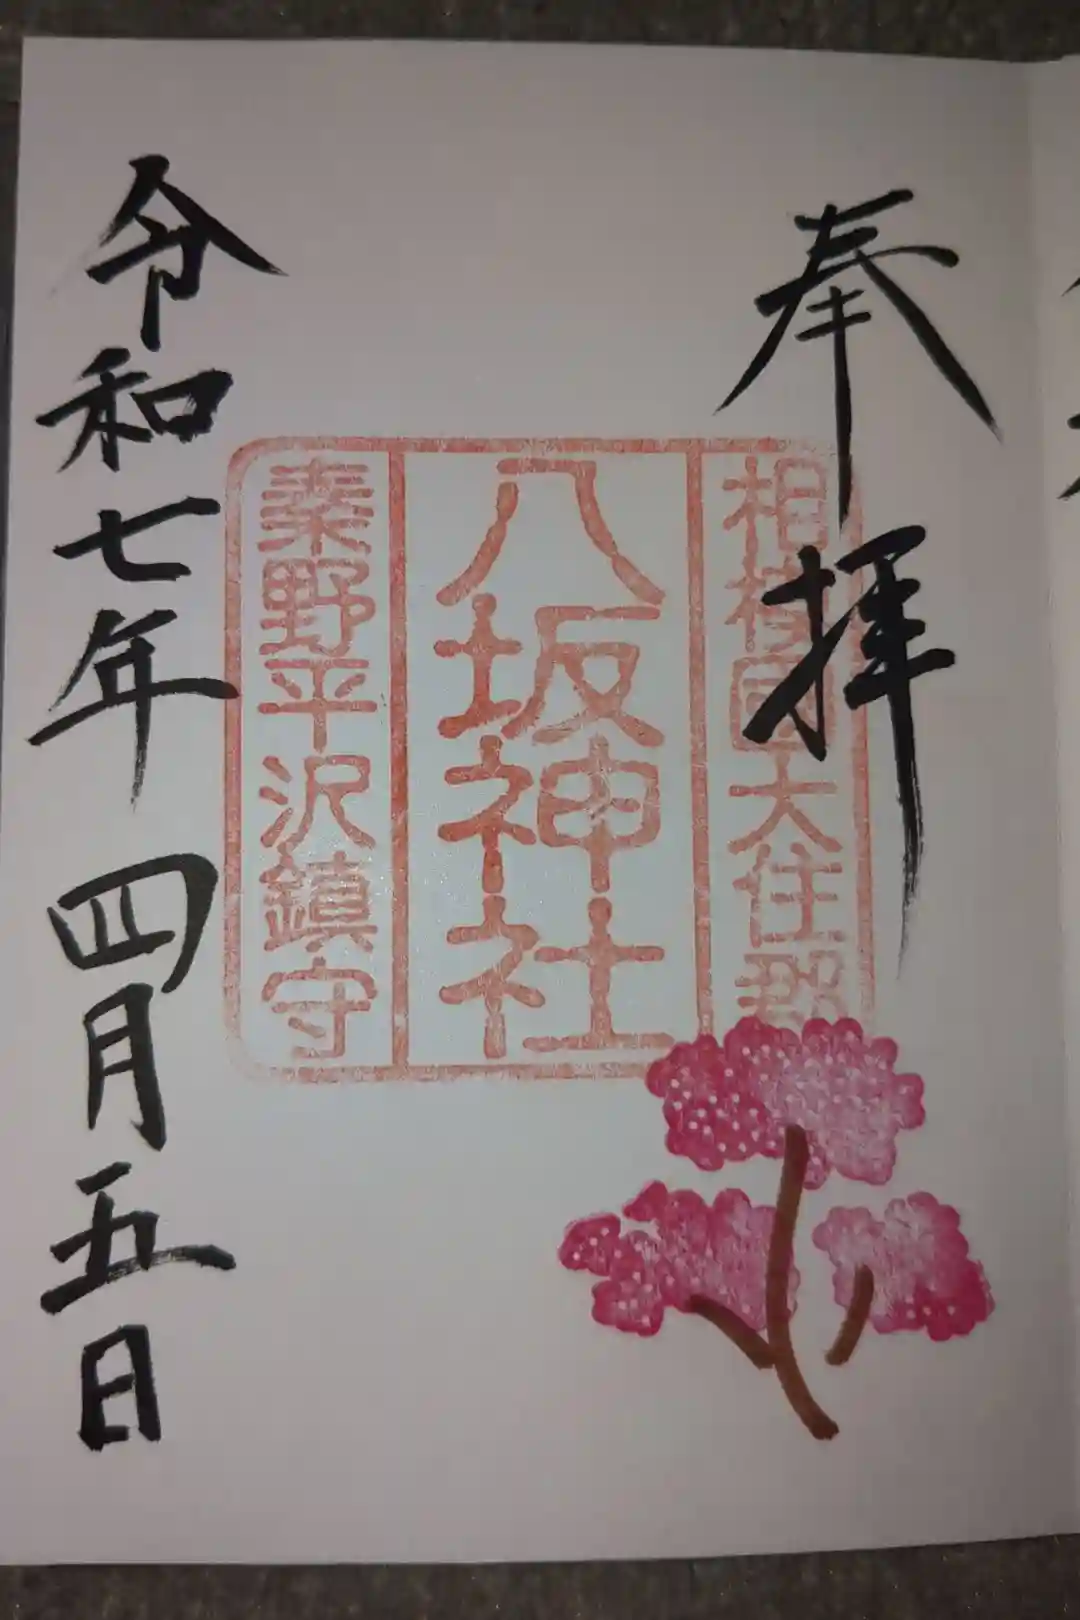 奉拝
相模国大住郡
八坂神社
秦野平沢鎮守
令和七年四月五日